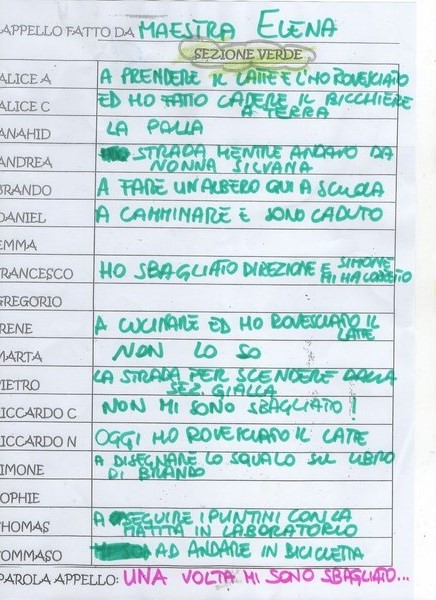 APPELLO FATTO DA MAESTRA ELENA
SEZIONE VERDE
ALICE A A PRENDERE IL LATTE E L'HO ROVESCIATO
ALICE C ED HO FATTO CADERE IL BICCHIERE
A TERRA
ANAHID LA PALLA
ANDREA STRADA MENTRE ANDAVO DA
NONNA SILVANA
BRANDO A FARE UN ALBERO QUI A SCUOLA
DANIEL A CAMMINARE E SONO CADUTO
EMMA
FRANCESCO HO SBAGLIATO DIREZIONE E SIMONE
MI HA CORRETTO
GREGORIO
IRENE A CUCINARE ED HO ROVESCIATO IL
LATTE
MARTA NON LO SO
PIETRO LA STRADA PER SCENDERE DALLA
SEZ. GIALLA
RICCARDO C NON MI SONO SBAGLIATO!
RICCARDO N OGGI HO ROVESCIATO IL LATTE
SIMONE A DISEGNARE LO SQUALO SUL LIBRO
DI BRANDO
SOPHIE
THOMAS A SEGUIRE I PUNTINI CON LA
MATITA IN LABORATORIO
TOMMASO AD ANDARE IN BICICLETTA
PAROLA APPELLO: UNA VOLTA MI SONO SBAGLIATO...